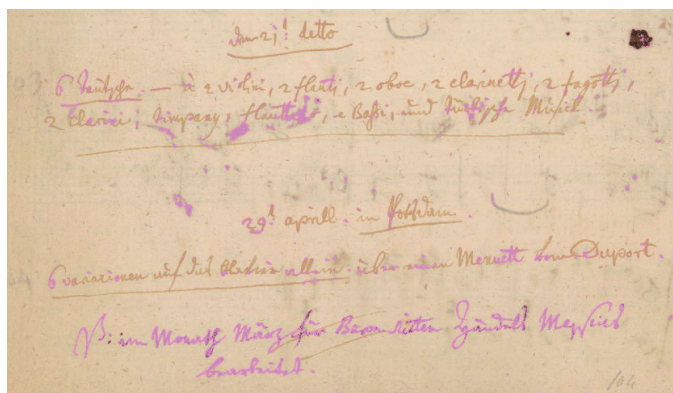 den 21:t detto
6 teutsche. — à 2 violini, 2 flauti, 2 oboe, 2 clarinetti, 2 fagotti,
2 Clarini, timpany, flautino, e Bassi, und türkische Musick.
29:t aprill. in Potsdam.
6 variazionen auf das Klavier allein. über einen Menuett von Duport.
NB: im Monath März für Baron Suiten Händels Messias
bearbeitet.
104